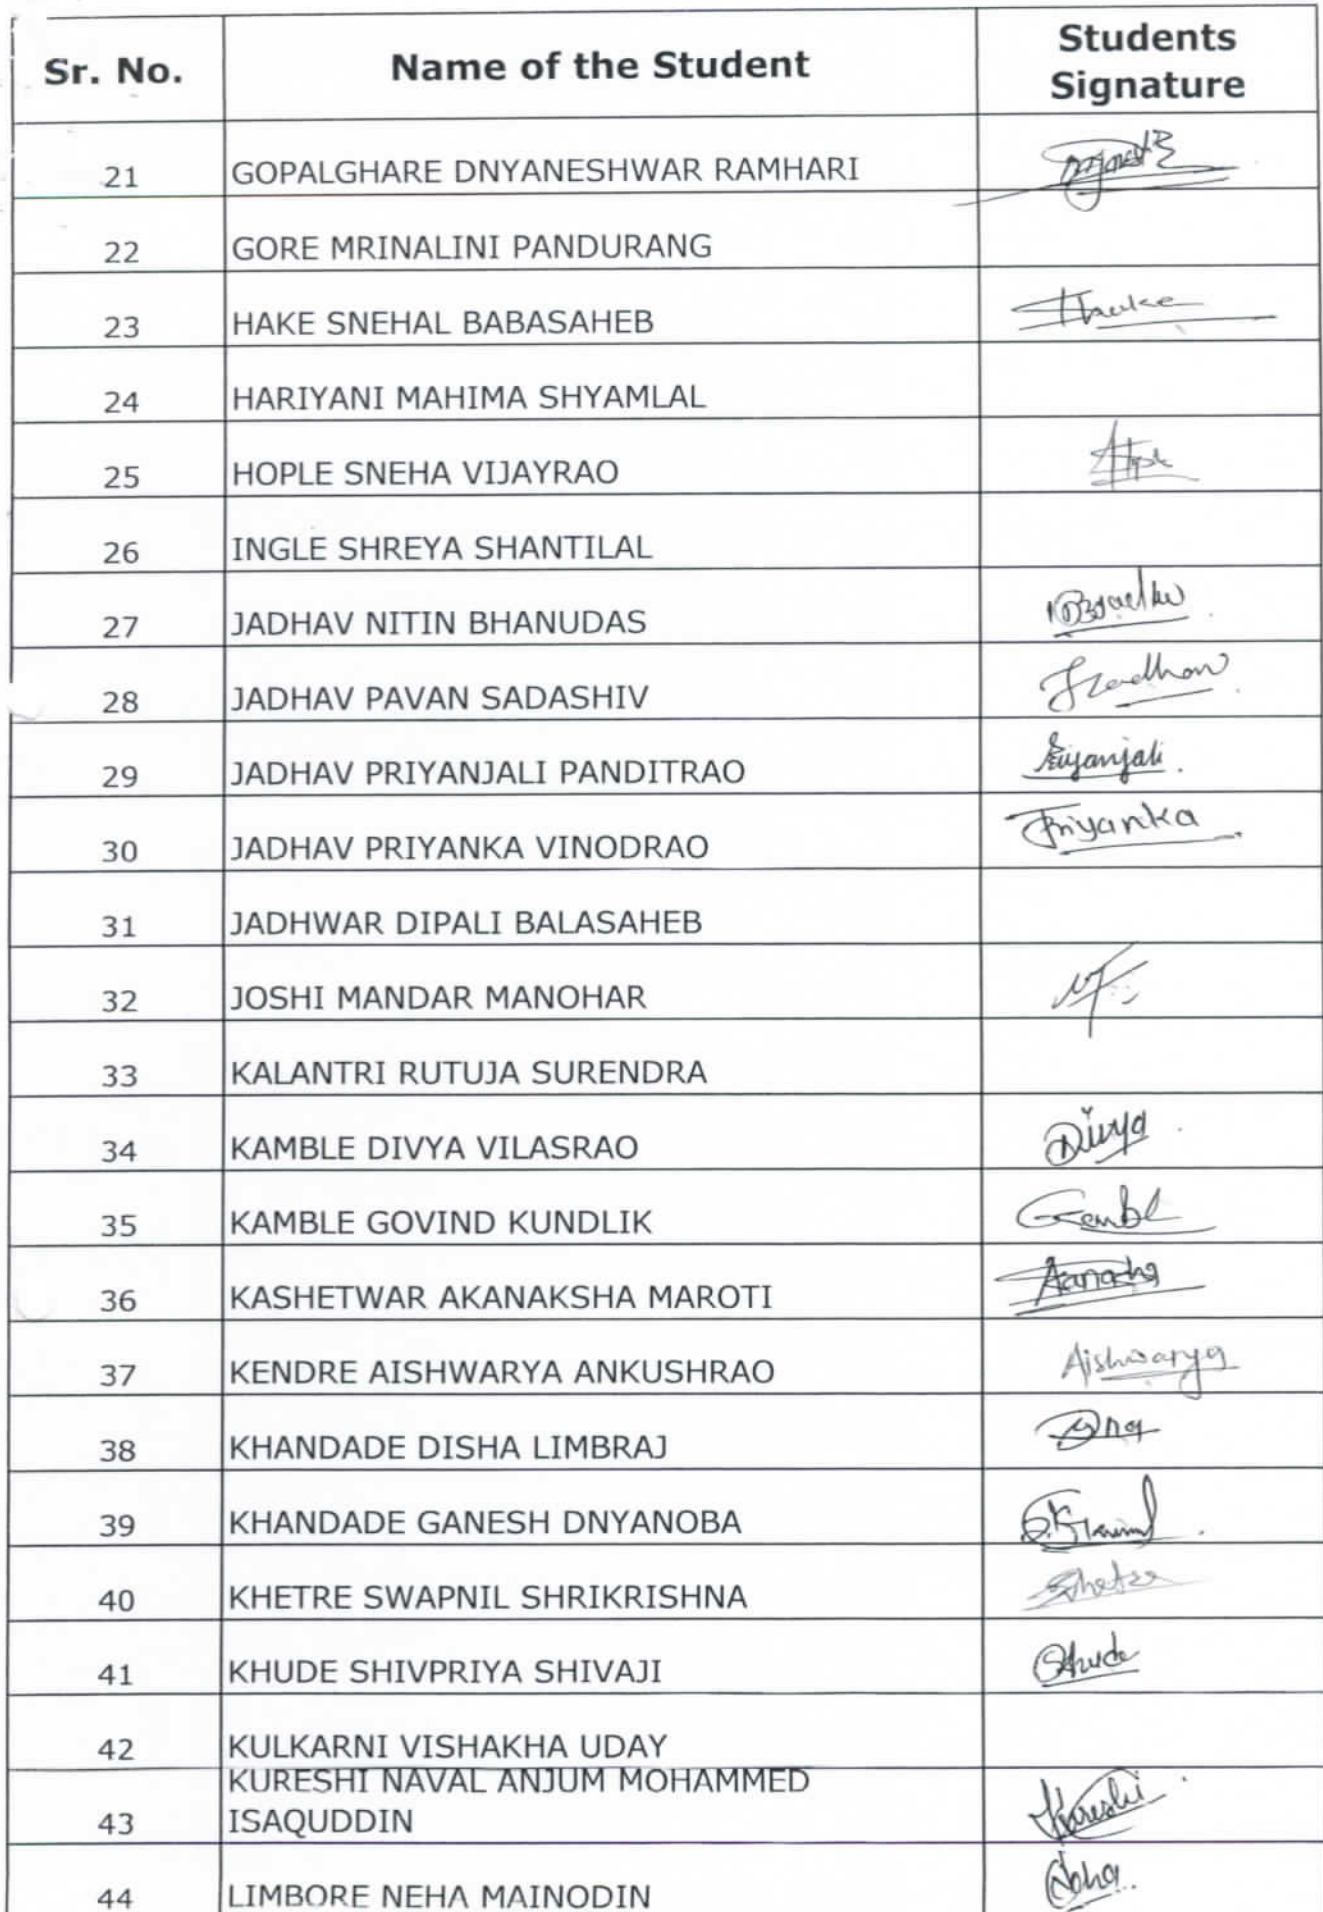 Sr. No. Name of the Student Students Signature
21 GOPALGHARE DNYANESHWAR RAMHARI
22 GORE MRINALINI PANDURANG
23 HAKE SNEHAL BABASAHEB Hake
24 HARIYANI MAHIMA SHYAMLAL
25 HOPLE SNEHA VIJAYRAO
26 INGLE SHREYA SHANTILAL
27 JADHAV NITIN BHANUDAS
28 JADHAV PAVAN SADASHIV
29 JADHAV PRIYANJALI PANDITRAO Priyanjali
30 JADHAV PRIYANKA VINODRAO Priyanka
31 JADHWAR DIPALI BALASAHEB
32 JOSHI MANDAR MANOHAR
33 KALANTRI RUTUJA SURENDRA
34 KAMBLE DIVYA VILASRAO Divya
35 KAMBLE GOVIND KUNDLIK
36 KASHETWAR AKANAKSHA MAROTI
37 KENDRE AISHWARYA ANKUSHRAO Aishwarya
38 KHANDADE DISHA LIMBRAJ
39 KHANDADE GANESH DNYANOBA
40 KHETRE SWAPNIL SHRIKRISHNA
41 KHUDE SHIVPRIYA SHIVAJI Khude
42 KULKARNI VISHAKHA UDAY
KURESHI NAVAL ANJUM MOHAMMED
43 ISAQUDDIN Kureshi
44 LIMBORE NEHA MAINODIN Neha